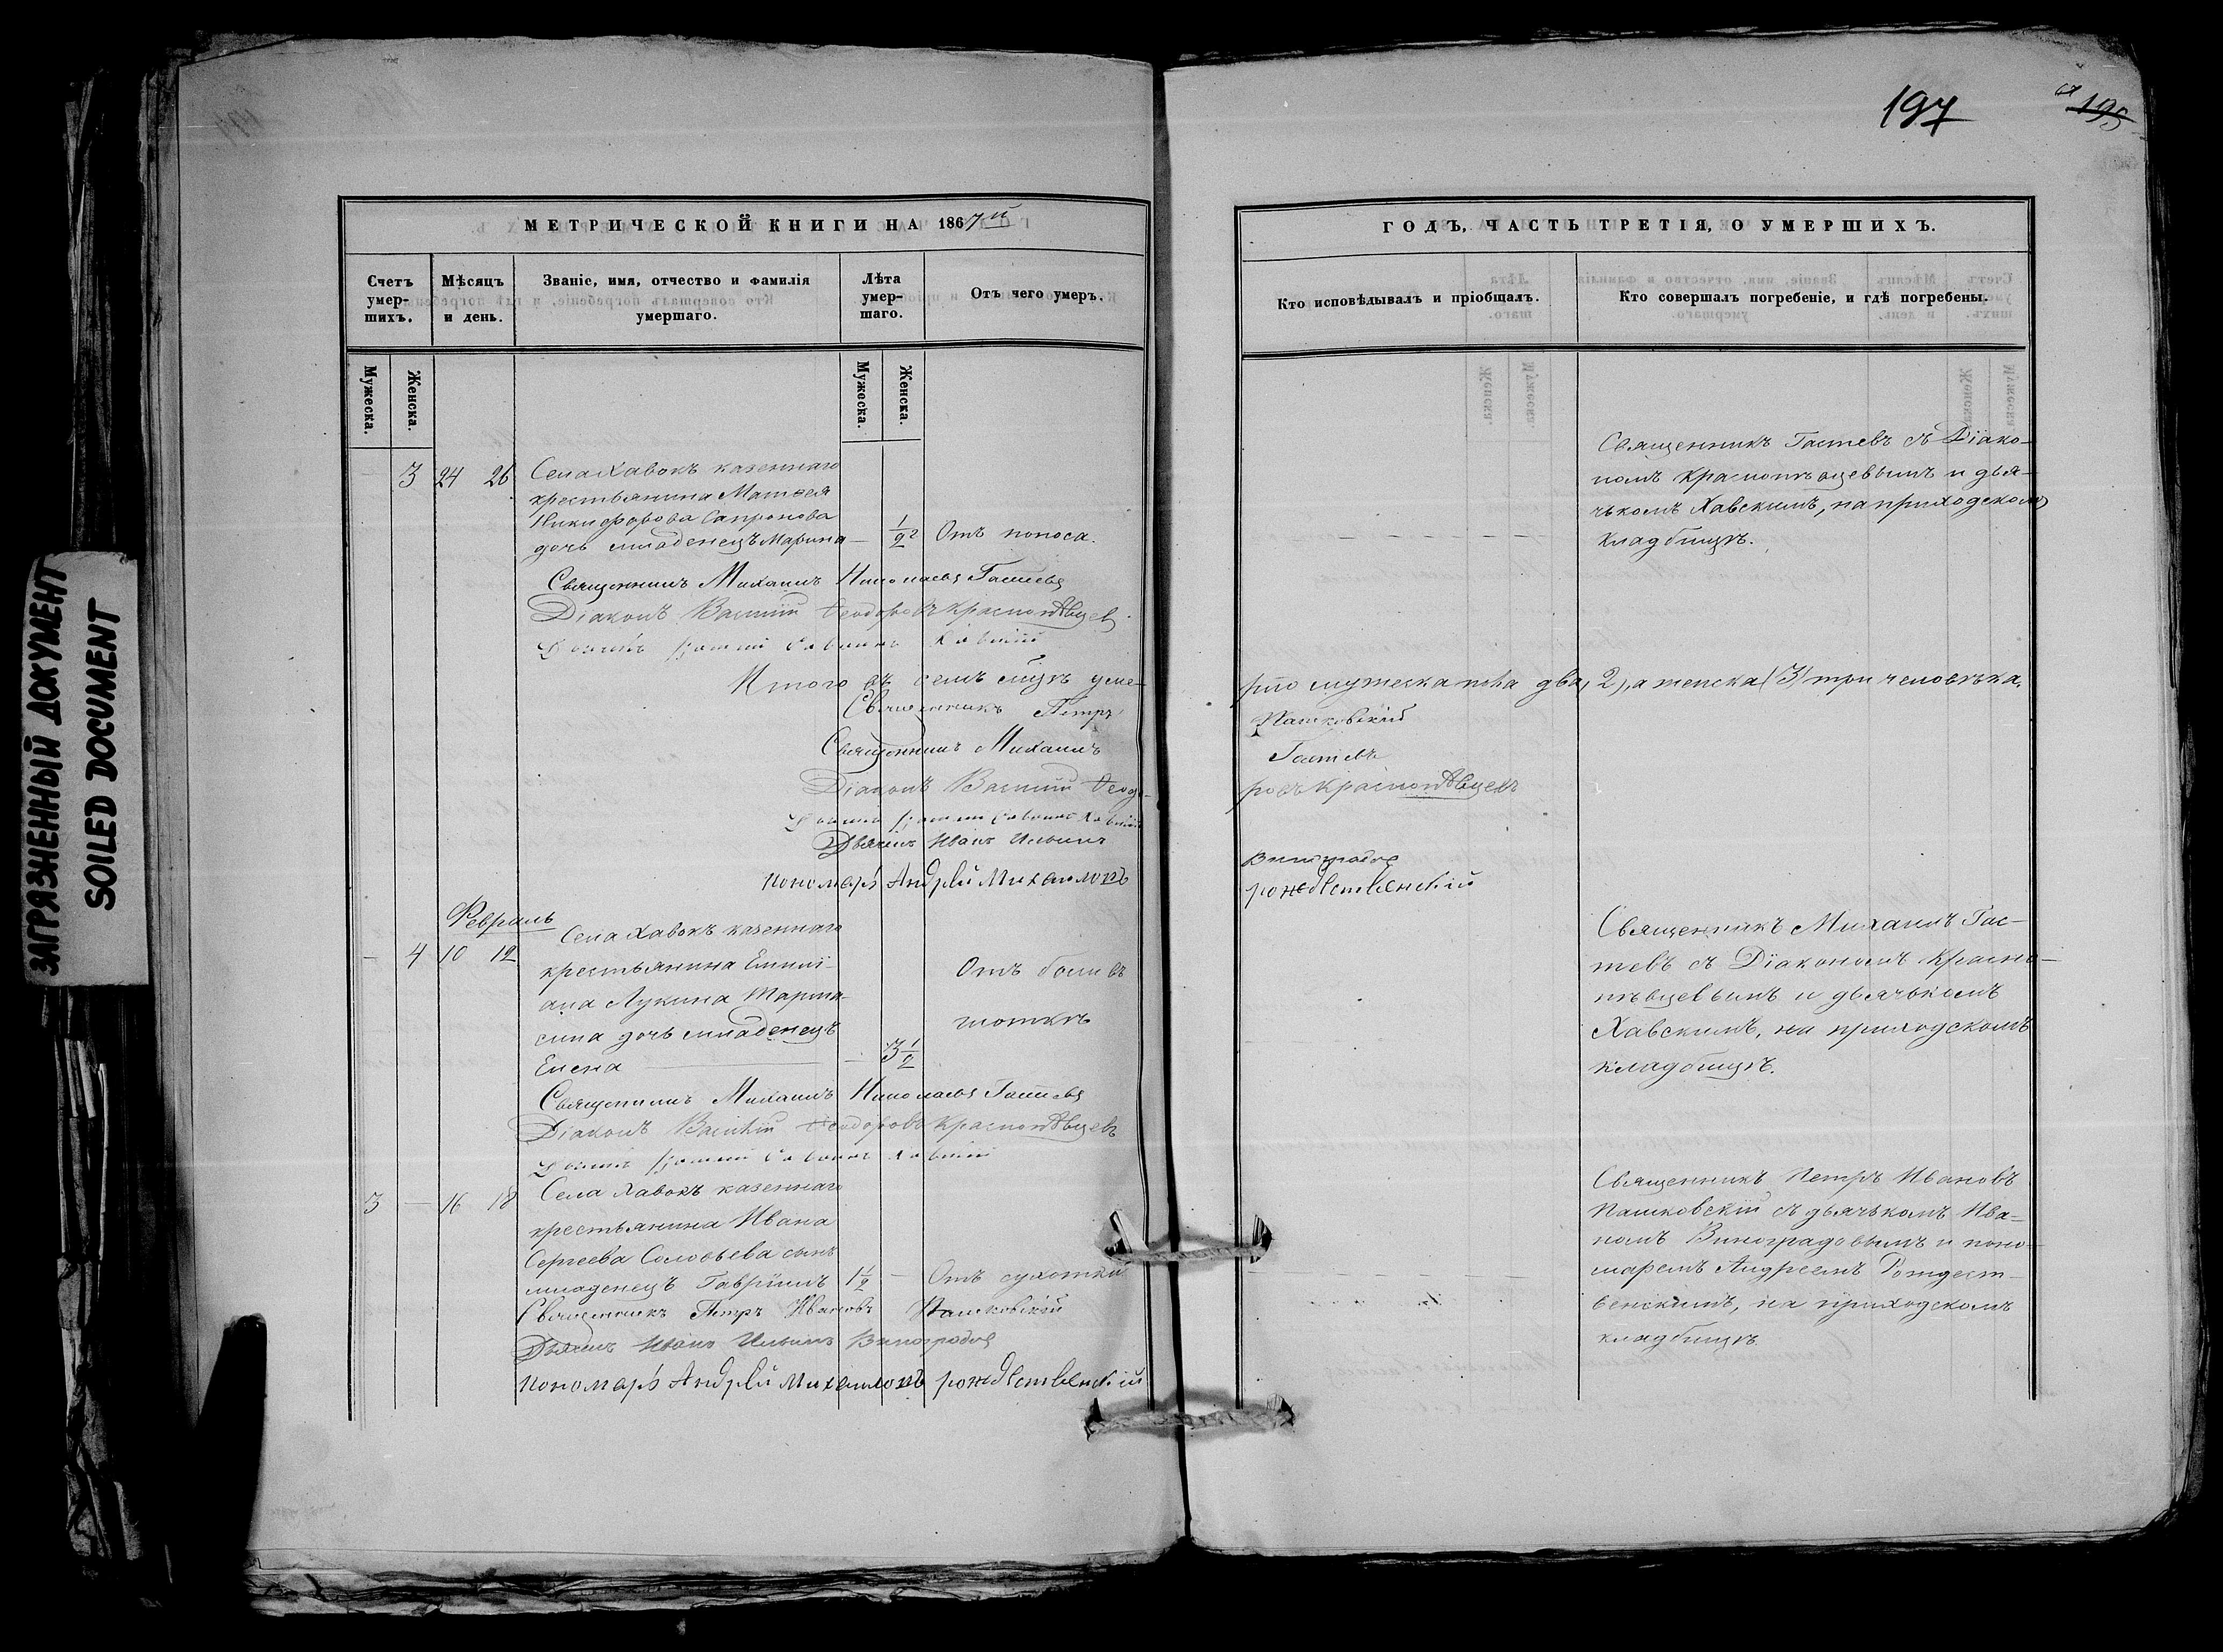 ЗАГРЯЗНЕННЫЙ ДОКУМЕНТ
SOILED DOCUMENT
МЕТРИЧЕСКОЙ КНИГИ НА 1867й
Счетъ умер-шихъ.
Мѣсяцъ и день.
Званіе, имя, отчество и фамилія умершаго.
Лѣта умер-шаго.
Отъ чего умеръ.
Мужеска.
Женска.
Мужеска.
Женска.
— 3 24 26 Села Хавокъ казеннаго
крестьянина Матвея
Никифорова Сапронова
дочь младенецъ Марина — 1/2 Отъ поноса.
Священникъ Михаилъ Николаевъ Гастевъ
Діаконъ Василій Ѳеодоровъ Краснопѣвцевъ
Хавскій
Итого въ семъ мѣсяцѣ уме-
Священникъ Петръ
Священникъ Михаилъ
Діаконъ Василій Ѳеодо-
Хавскій
Дьячекъ Иванъ Ильинъ
Пономарь Андрей Михаиловъ
Февраль
— 4 10 12 Села Хавокъ казеннаго
крестьянина Емили-
ана Лукина
сина дочь младенецъ
Елена — 3 1/2
Отъ боли въ
глоткѣ
Священникъ Михаилъ Николаевъ Гастевъ
Діаконъ Василій Ѳеодоровъ Краснопѣвцевъ
Хавскій
3 — 16 18 Села Хавокъ казеннаго
крестьянина Ивана
Сергеева Соловьева сынъ
младенецъ Гавріилъ 1 1/2 — Отъ сухотки
Священникъ Петръ Ивановъ Пашковскій
Дьячекъ Иванъ Ильинъ Виноградовъ
Пономарь Андрей Михаиловъ Рождественскій
197
195
ГОДЪ, ЧАСТЬ ТРЕТІЯ, О УМЕРШИХЪ.
Кто исповѣдывалъ и пріобщалъ.
Кто совершалъ погребеніе, и гдѣ погребены.
Священникъ Гастевъ съ Діако-
номъ Краснопѣвцевымъ и дья-
чькомъ Хавскимъ, на приходскомъ
кладбищѣ.
рло мужеска пола два, 2), а женска (3) три человѣка.
Пашковскій
Гастевъ
ровъ Краснопѣвцевъ
Виноградовъ
Рождественскій
Священникъ Михаилъ Гас-
тевъ съ Діакономъ Красно-
пѣвцевымъ и дьячькомъ
Хавскимъ, на приходскомъ
кладбищѣ.
Священникъ Петръ Ивановъ
Пашковскій съ дьячькомъ Ива-
номъ Виноградовымъ и поно-
маремъ Андреемъ Рождест-
венскимъ, на приходскомъ
кладбищѣ.